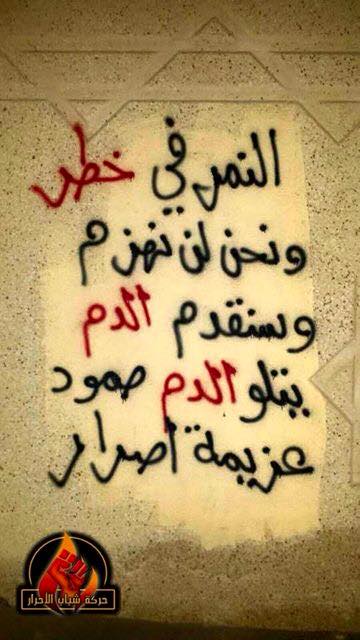 النمر في خطر
ونحن لن نهزم
وسنقدم الدم
يتلو الدم صمود
عزيمة اصرار
حركة شباب الأحرار